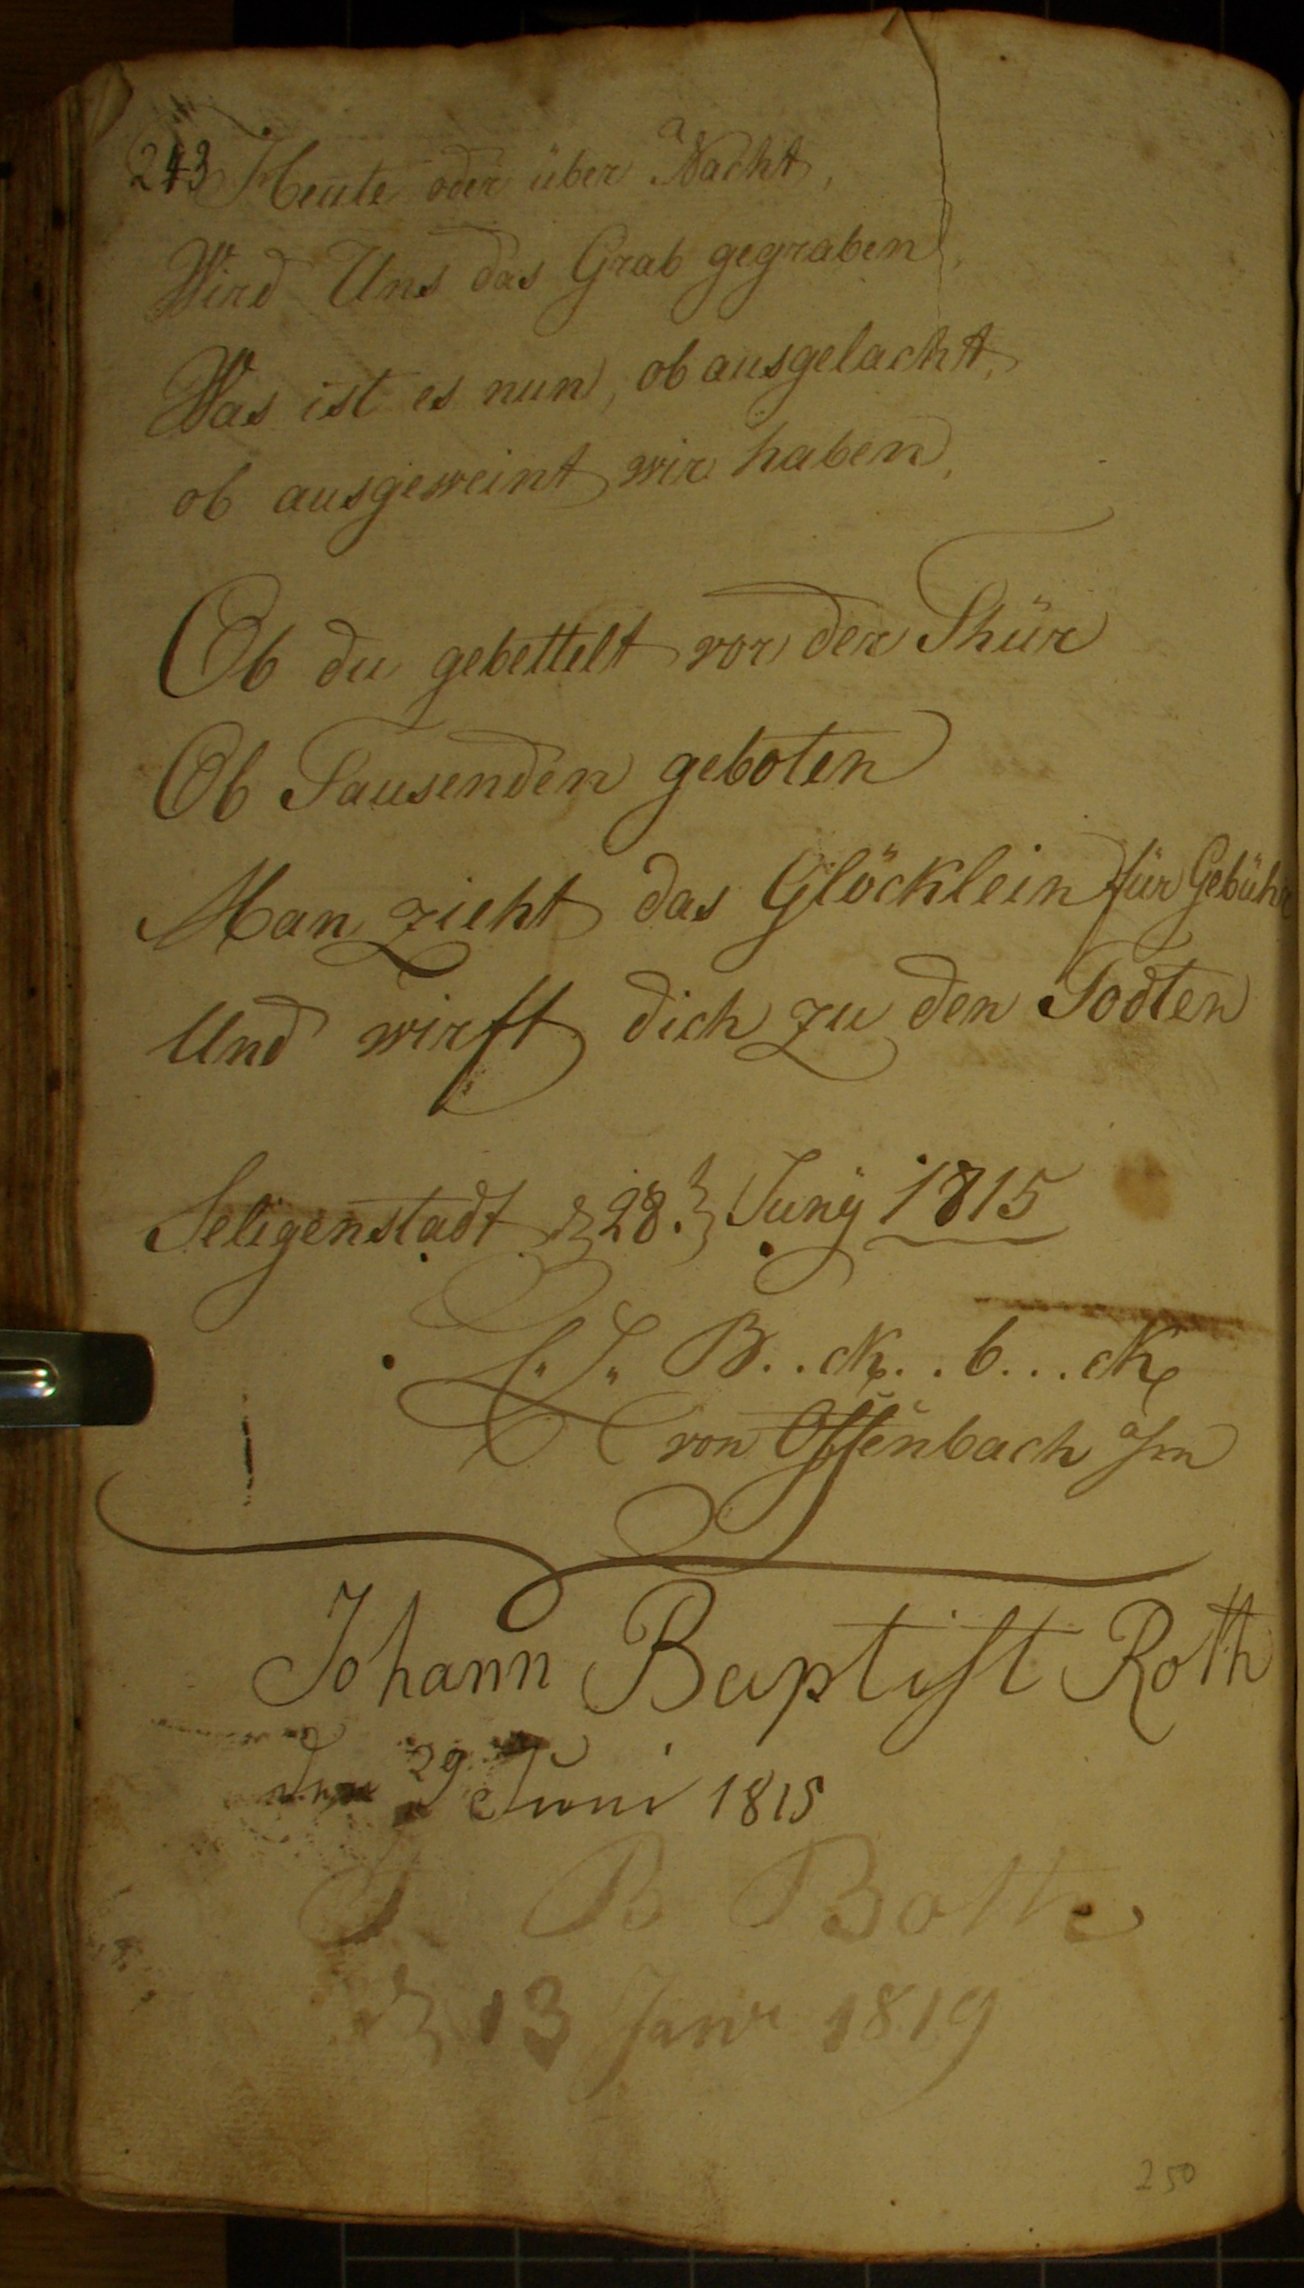 243 Heute oder über Nacht,
Wird Uns das Grab gegraben,
Was ist es nun, ob ausgelacht,
ob ausgeweint wir haben,
Ob du gebettelt vor der Thür
Ob Tausenden geboten
Man zieht das Glöcklein für Gebühr
Und wirft dich zu den Todten
Seligenstadt d 28. Juny 1815
B..ck..b...ck
von Offenbach
Johann Baptist Roth
den 29 Juni 1815
B
13 Janr 1819
250